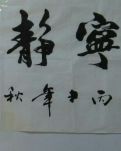 寧静
丙申年秋